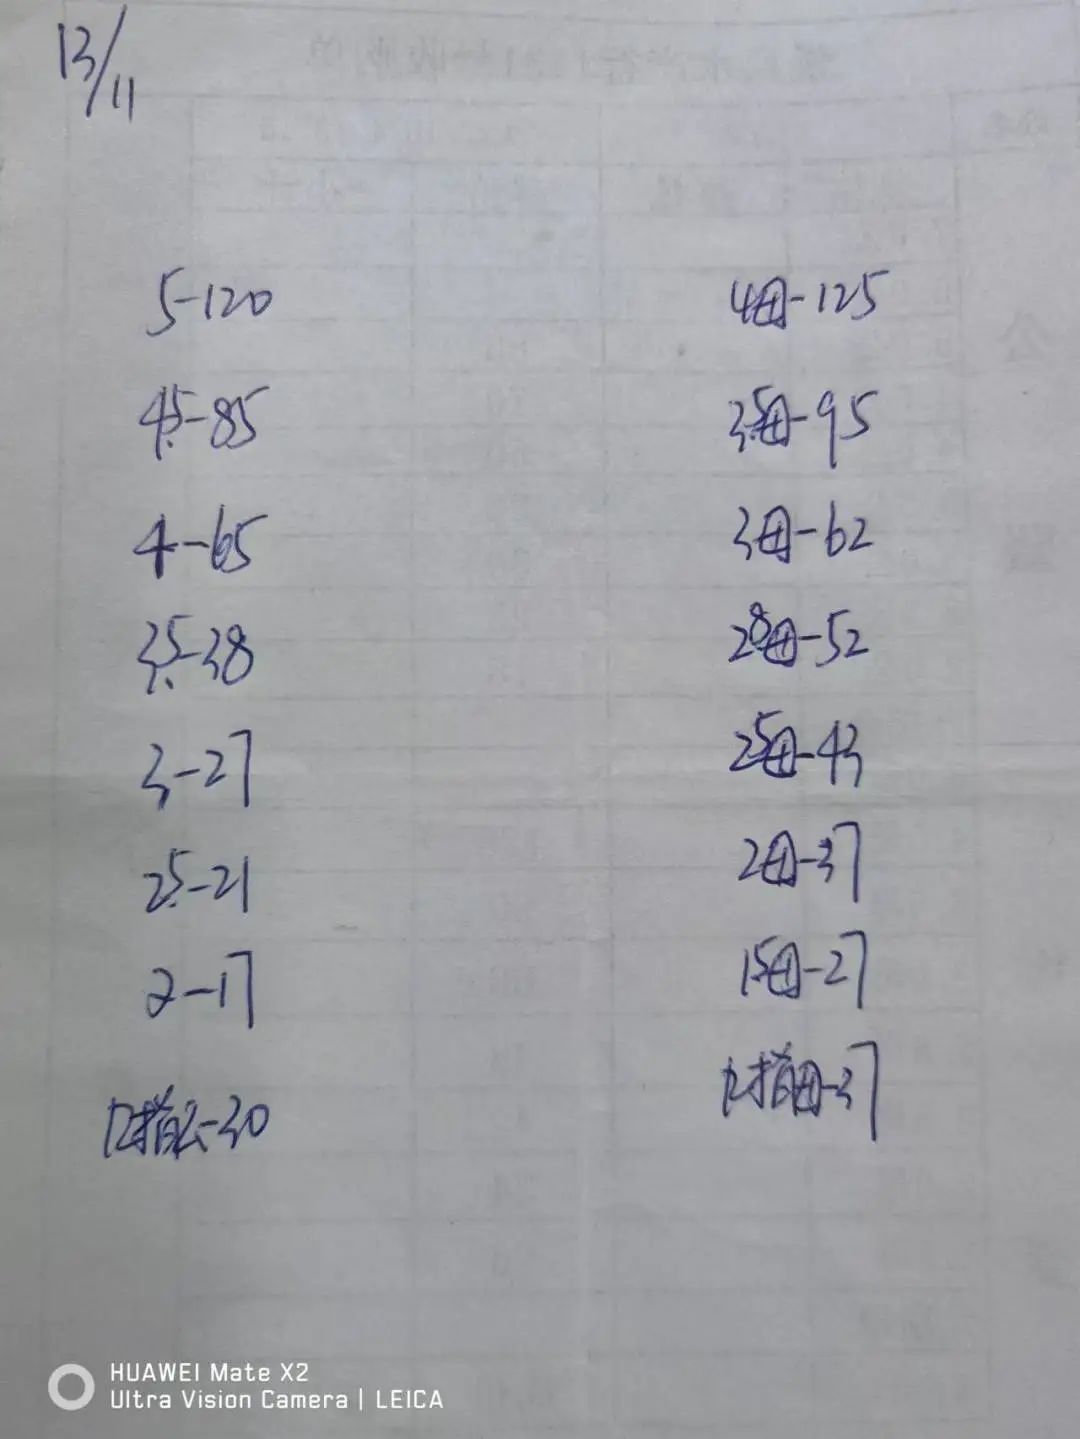 13/11
5-120
4.5-85
4-65
3.5-38
3-27
2.5-21
2-17
4母-125
3.5母-95
3母-62
2.8母-52
2.5母-43
2母-37
1.5母-27
HUAWEI Mate X2
Ultra Vision Camera | LEICA